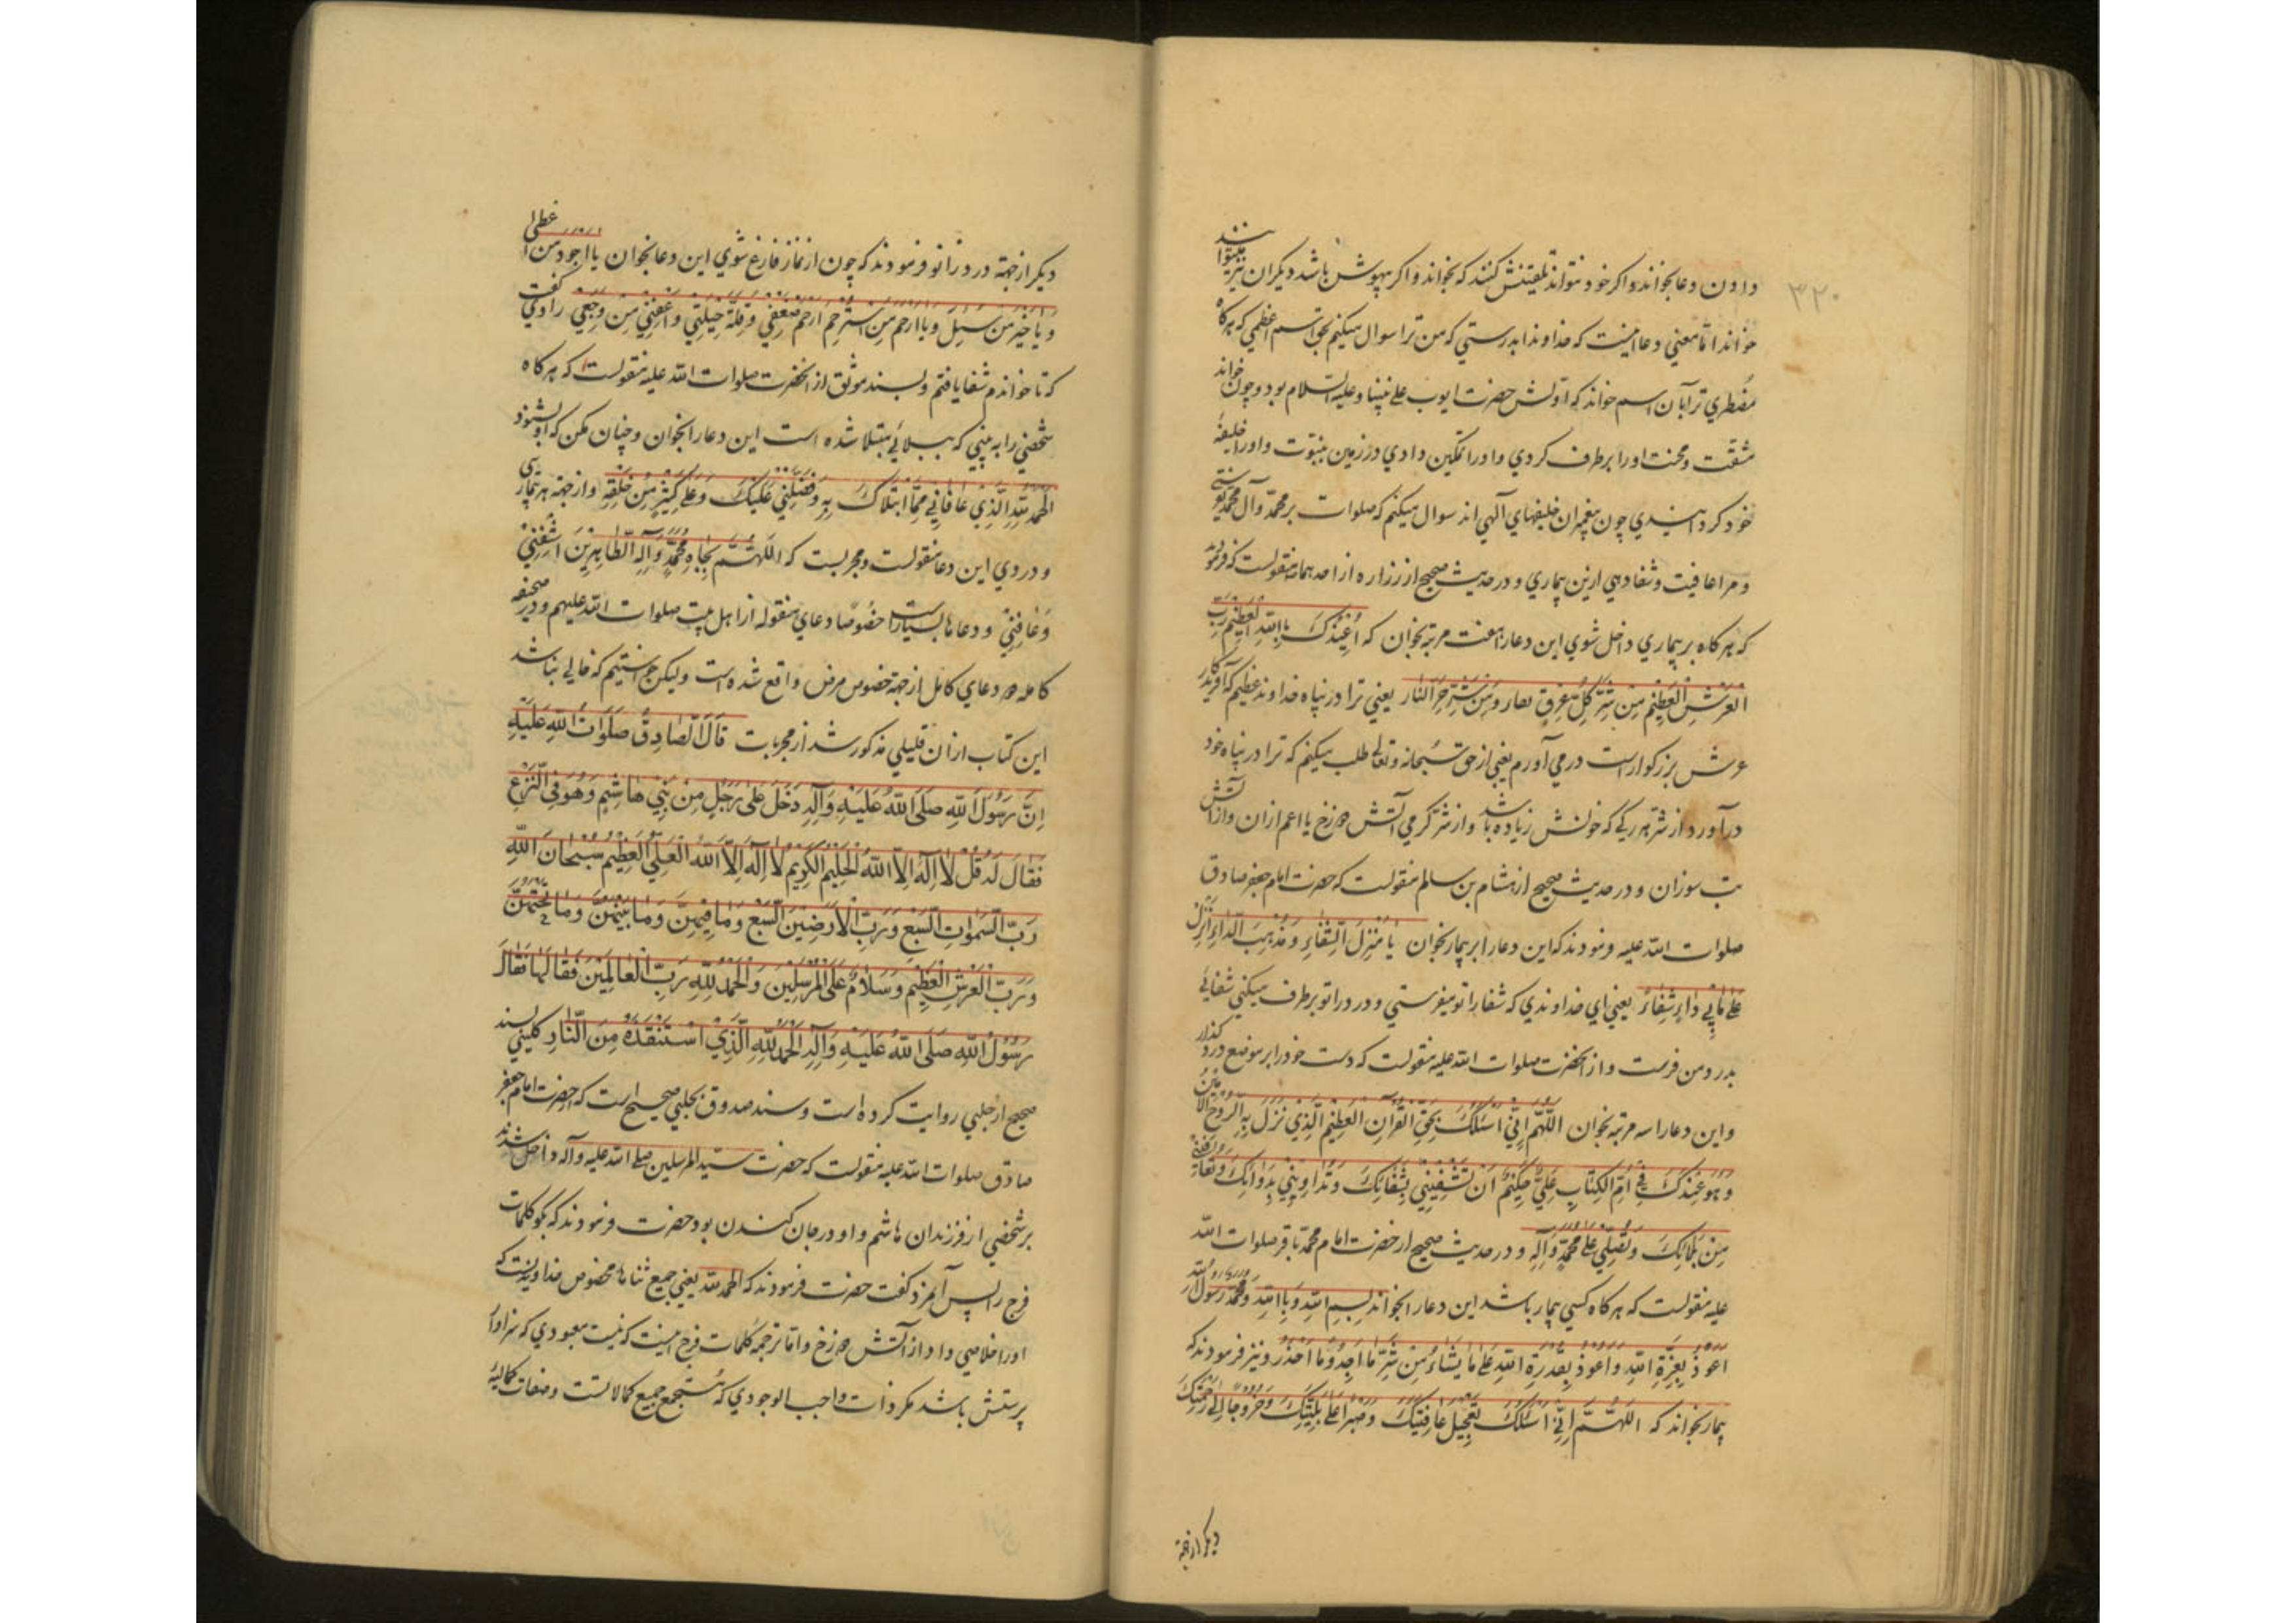 ۳۲۰
دادن دعا بخواند و اکر خود نتواند تلقینش کنند که بخواند و اکر بیهوش باشد دیکران نیز میتوانند
خواند اما معنی دعا اینست که خداوندا بدرستی که من ترا سوال میکنم بحق اسم اعظمی که هرکاه
مضطری ترا بآن اسم خواند که اولش حضرت ایوب علی نبینا و علیه السلام بود و چون خواند
مشقت و محنت او را برطرف کردی و او را تمکین دادی در زمین بنبوت و او را خلیفهٔ
خود کردانیدی چون پیغمبران خلیفهای آلهی اند سوال میکنم که صلوات بر محمد و آل محمد
و مرا عافیت و شفا دهی ازین بیماری و در حدیث صحیح از زراره از احدهما منقولست که فرمود
که هر کاه بر بیماری داخل شوی این دعا را هفت مرتبه بخوان که اُعِیْذُکَ بِاللّٰهِ الْعَظِیْمِ رَبِّ
الْعَرْشِ الْعَظِیْمِ مِنْ شَرِّ کُلِّ عِرْقٍ نعار وَ مِنْ شَرِّ حَرِّ النَّارِ یعنی ترا در پناه خداوند عظیم که آفریدکار
عرش بزرکوار است در می آورم یعنی از حق سبحانه و تعالی طلب میکنم که ترا در پناه خود
درآورد از شر هر رکی که خونش زیاده باشد و از شر کرمی آتش دوزخ یا اعم ازان و از آتش
تب سوزان و در حدیث صحیح از هشام بن سالم منقولست که حضرت امام جعفر صادق
صلوات الله علیه فرمودند که این دعا را بر بیمار بخوان یَا مُنْزِلَ الشِّفَاءِ وَ مُذْهِبَ الدَّاءِ اَنْزِلْ
عَلٰی مَا بِیْ دَاءٍ شِفَاءً یعنی ای خداوندی که شفا را تو میفرستی و درد را تو برطرف میکنی شفائی
بدرد من فرست و از آنحضرت صلوات الله علیه منقولست که دست خود را بر موضع درد کذار
و این دعا را سه مرتبه بخوان اَللّٰهُمَّ اِنِّیْ اَسْئَلُکَ بِحَقِّ الْقُرْآنِ الْعَظِیْمِ الَّذِیْ نَزَلَ بِهِ الرُّوْحُ الْاَمِیْنُ
وَ هُوَ عِنْدَکَ فِیْ اُمِّ الْکِتَابِ عَلِیٌّ حَکِیْمٌ اَنْ تَشْفِیَنِیْ بِشِفَائِکَ وَ تُدَاوِیَنِیْ بِدَوَائِکَ وَ تُعَافِیَنِیْ
مِنْ بَلَائِکَ وَ تُصَلِّیَ عَلٰی مُحَمَّدٍ وَ آلِهِ و در حدیث صحیح از حضرت امام محمد باقر صلوات الله
علیه منقولست که هر کاه کسی بیمار باشد این دعا را بخواند بِسْمِ اللّٰهِ وَ بِاللّٰهِ وَ مُحَمَّدٌ رَسُوْلُ اللّٰهِ
اَعُوْذُ بِعِزَّةِ اللّٰهِ وَ اَعُوْذُ بِقُدْرَةِ اللّٰهِ عَلٰی مَا یَشَاءُ مِنْ شَرِّ مَا اَجِدُ وَ مَا اَحْذَرُ و نیز فرمودند که
بیمار بخواند که اَللّٰهُمَّ اِنِّیْ اَسْئَلُکَ تَعْجِیْلَ عَافِیَتِکَ وَ صَبْرًا عَلٰی بَلِیَّتِکَ وَ خُرُوْجًا اِلٰی رَحْمَتِکَ
دیکر از جهة
دیکر از جهة درد زانو فرمودند که چون از نماز فارغ شوی این دعا بخوان یا اَجْوَدَ مَنْ اَعْطٰی
وَ یَا خَیْرَ مَنْ سُئِلَ وَ یَا اَرْحَمَ مَنِ اسْتُرْحِمَ اِرْحَمْ ضَعْفِیْ وَ قِلَّةَ حِیْلَتِیْ وَ اعْفِنِیْ مِنْ وَجَعِیْ راوی گفت
که تا خواندم شفا یافتم و بسند موثق از آنحضرت صلوات الله علیه منقولست که هر کاه
شخصی را به بینی که ببلائی مبتلا شده است این دعا را بخوان و چنان مکن که او بشنود
اَلْحَمْدُ لِلّٰهِ الَّذِیْ عَافَانِیْ مِمَّا ابْتَلَاکَ بِهِ وَ فَضَّلَنِیْ عَلَیْکَ وَ عَلٰی کَثِیْرٍ مِنْ خَلْقِهِ و از جهة هر بیماری
و دردی این دعا منقولست و مجربست که اَللّٰهُمَّ بِجَاهِ مُحَمَّدٍ وَ آلِهِ الطَّاهِرِیْنَ اشْفِنِیْ
وَ عَافِنِیْ و دعاها بسیار است خصوصا دعای منقوله از اهل بیت صلوات الله علیهم و در صحیفه
کامله دو دعای کامل از جهة خصوص مرض واقع شده است و لیکن خواستیم که خالی نباشد
این کتاب ازان قلیلی مذکور شد از مجربات قَالَ الصَّادِقُ صَلَوَاتُ اللّٰهِ عَلَیْهِ
اِنَّ رَسُوْلَ اللّٰهِ صَلَّی اللّٰهُ عَلَیْهِ وَ آلِهِ دَخَلَ عَلٰی رَجُلٍ مِنْ بَنِیْ هَاشِمٍ وَ هُوَ فِی النَّزْعِ
فَقَالَ لَهُ قُلْ لَا اِلٰهَ اِلَّا اللّٰهُ الْحَلِیْمُ الْکَرِیْمُ لَا اِلٰهَ اِلَّا اللّٰهُ الْعَلِیُّ الْعَظِیْمُ سُبْحَانَ اللّٰهِ
رَبِّ السَّمٰوَاتِ السَّبْعِ وَ رَبِّ الْاَرَضِیْنَ السَّبْعِ وَ مَا فِیْهِنَّ وَ مَا بَیْنَهُنَّ وَ مَا تَحْتَهُنَّ
وَ رَبِّ الْعَرْشِ الْعَظِیْمِ وَ سَلَامٌ عَلَی الْمُرْسَلِیْنَ وَ الْحَمْدُ لِلّٰهِ رَبِّ الْعَالَمِیْنَ فَقَالَهَا فَقَالَ
رَسُوْلُ اللّٰهِ صَلَّی اللّٰهُ عَلَیْهِ وَ آلِهِ الْحَمْدُ لِلّٰهِ الَّذِیْ اسْتَنْقَذَهُ مِنَ النَّارِ کلینی بسند
صحیح از حلبی روایت کرده است و سند صدوق بحلبی صحیح است که حضرت امام جعفر
صادق صلوات الله علیه منقولست که حضرت سید المرسلین صلی الله علیه و آله داخل شدند
بر شخصی از فرزندان هاشم و او در جان کندن بود حضرت فرمودند که بکو کلمات
فرج را پس آنمرد کفت حضرت فرمودند که الحمد لله یعنی جمیع ثناها مخصوص خداوندیست که
او را خلاصی داد از آتش دوزخ و اما ترجمه کلمات فرج اینست که نیست معبودی که سزاوار
پرستش باشد مکر ذات واجب الوجودی که مستجمع جمیع کمالاتست و صفات کمالیه